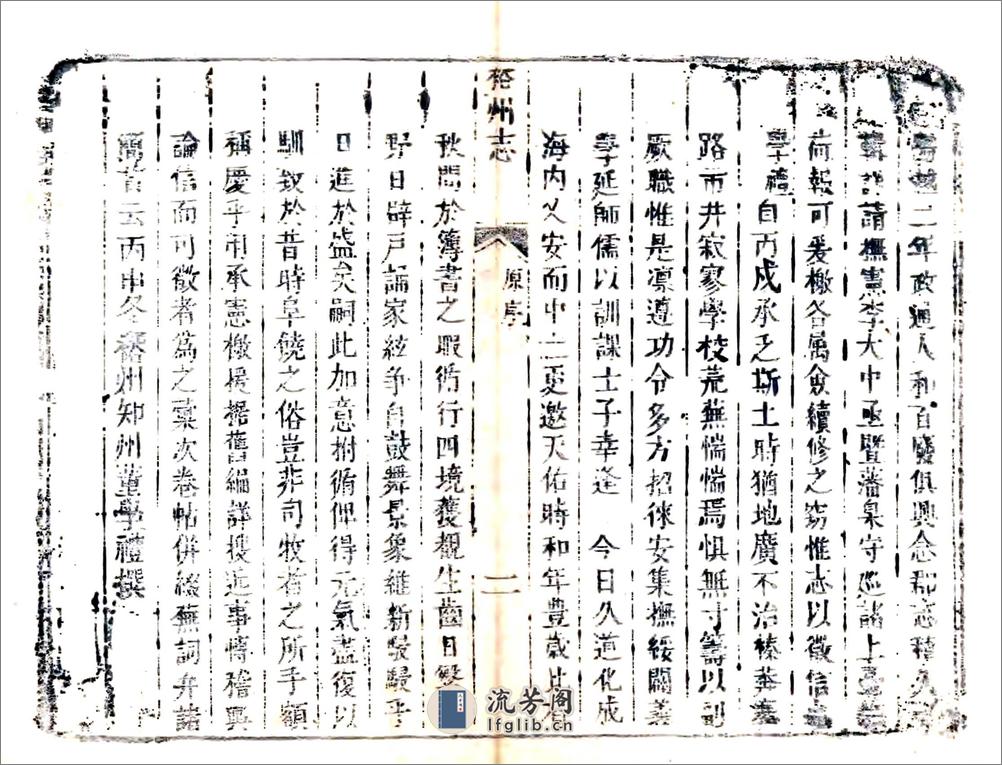 二年政通人和百廢俱興念郡志積久
請撫憲李大中丞暨藩臬守巡諸上
荷報可爰檄各屬僉續修之窃惟志以徵信
學禮自丙戌承乏斯土時猶地廣不治榛莽
路市井寂寥學校荒蕪惴惴焉惧無寸籌以副
厥職惟是凛遵功令多方招徠安集撫綏闢義
學延師儒以訓課士子幸逢 今日久道化成
海内乂安而中土更邀天佑時和年豊歲
裕州志
原序
二
秋間於簿書之暇循行四境獲覩生齒日繁
野日辟戸誦家絃争自鼓舞景象維新駸駸乎
日進於盛矣嗣此加意拊循俾得元氣盡復以
馴致於昔時阜饒之俗豈非司牧者之所手額
稱慶乎用承憲檄援据舊編詳搜近事博稽輿
論信而可徵者為之彙次卷帖併綴蕪詞弁諸
簡首云丙申冬裕州知州董學禮撰
流芳阁
lfglib.cn